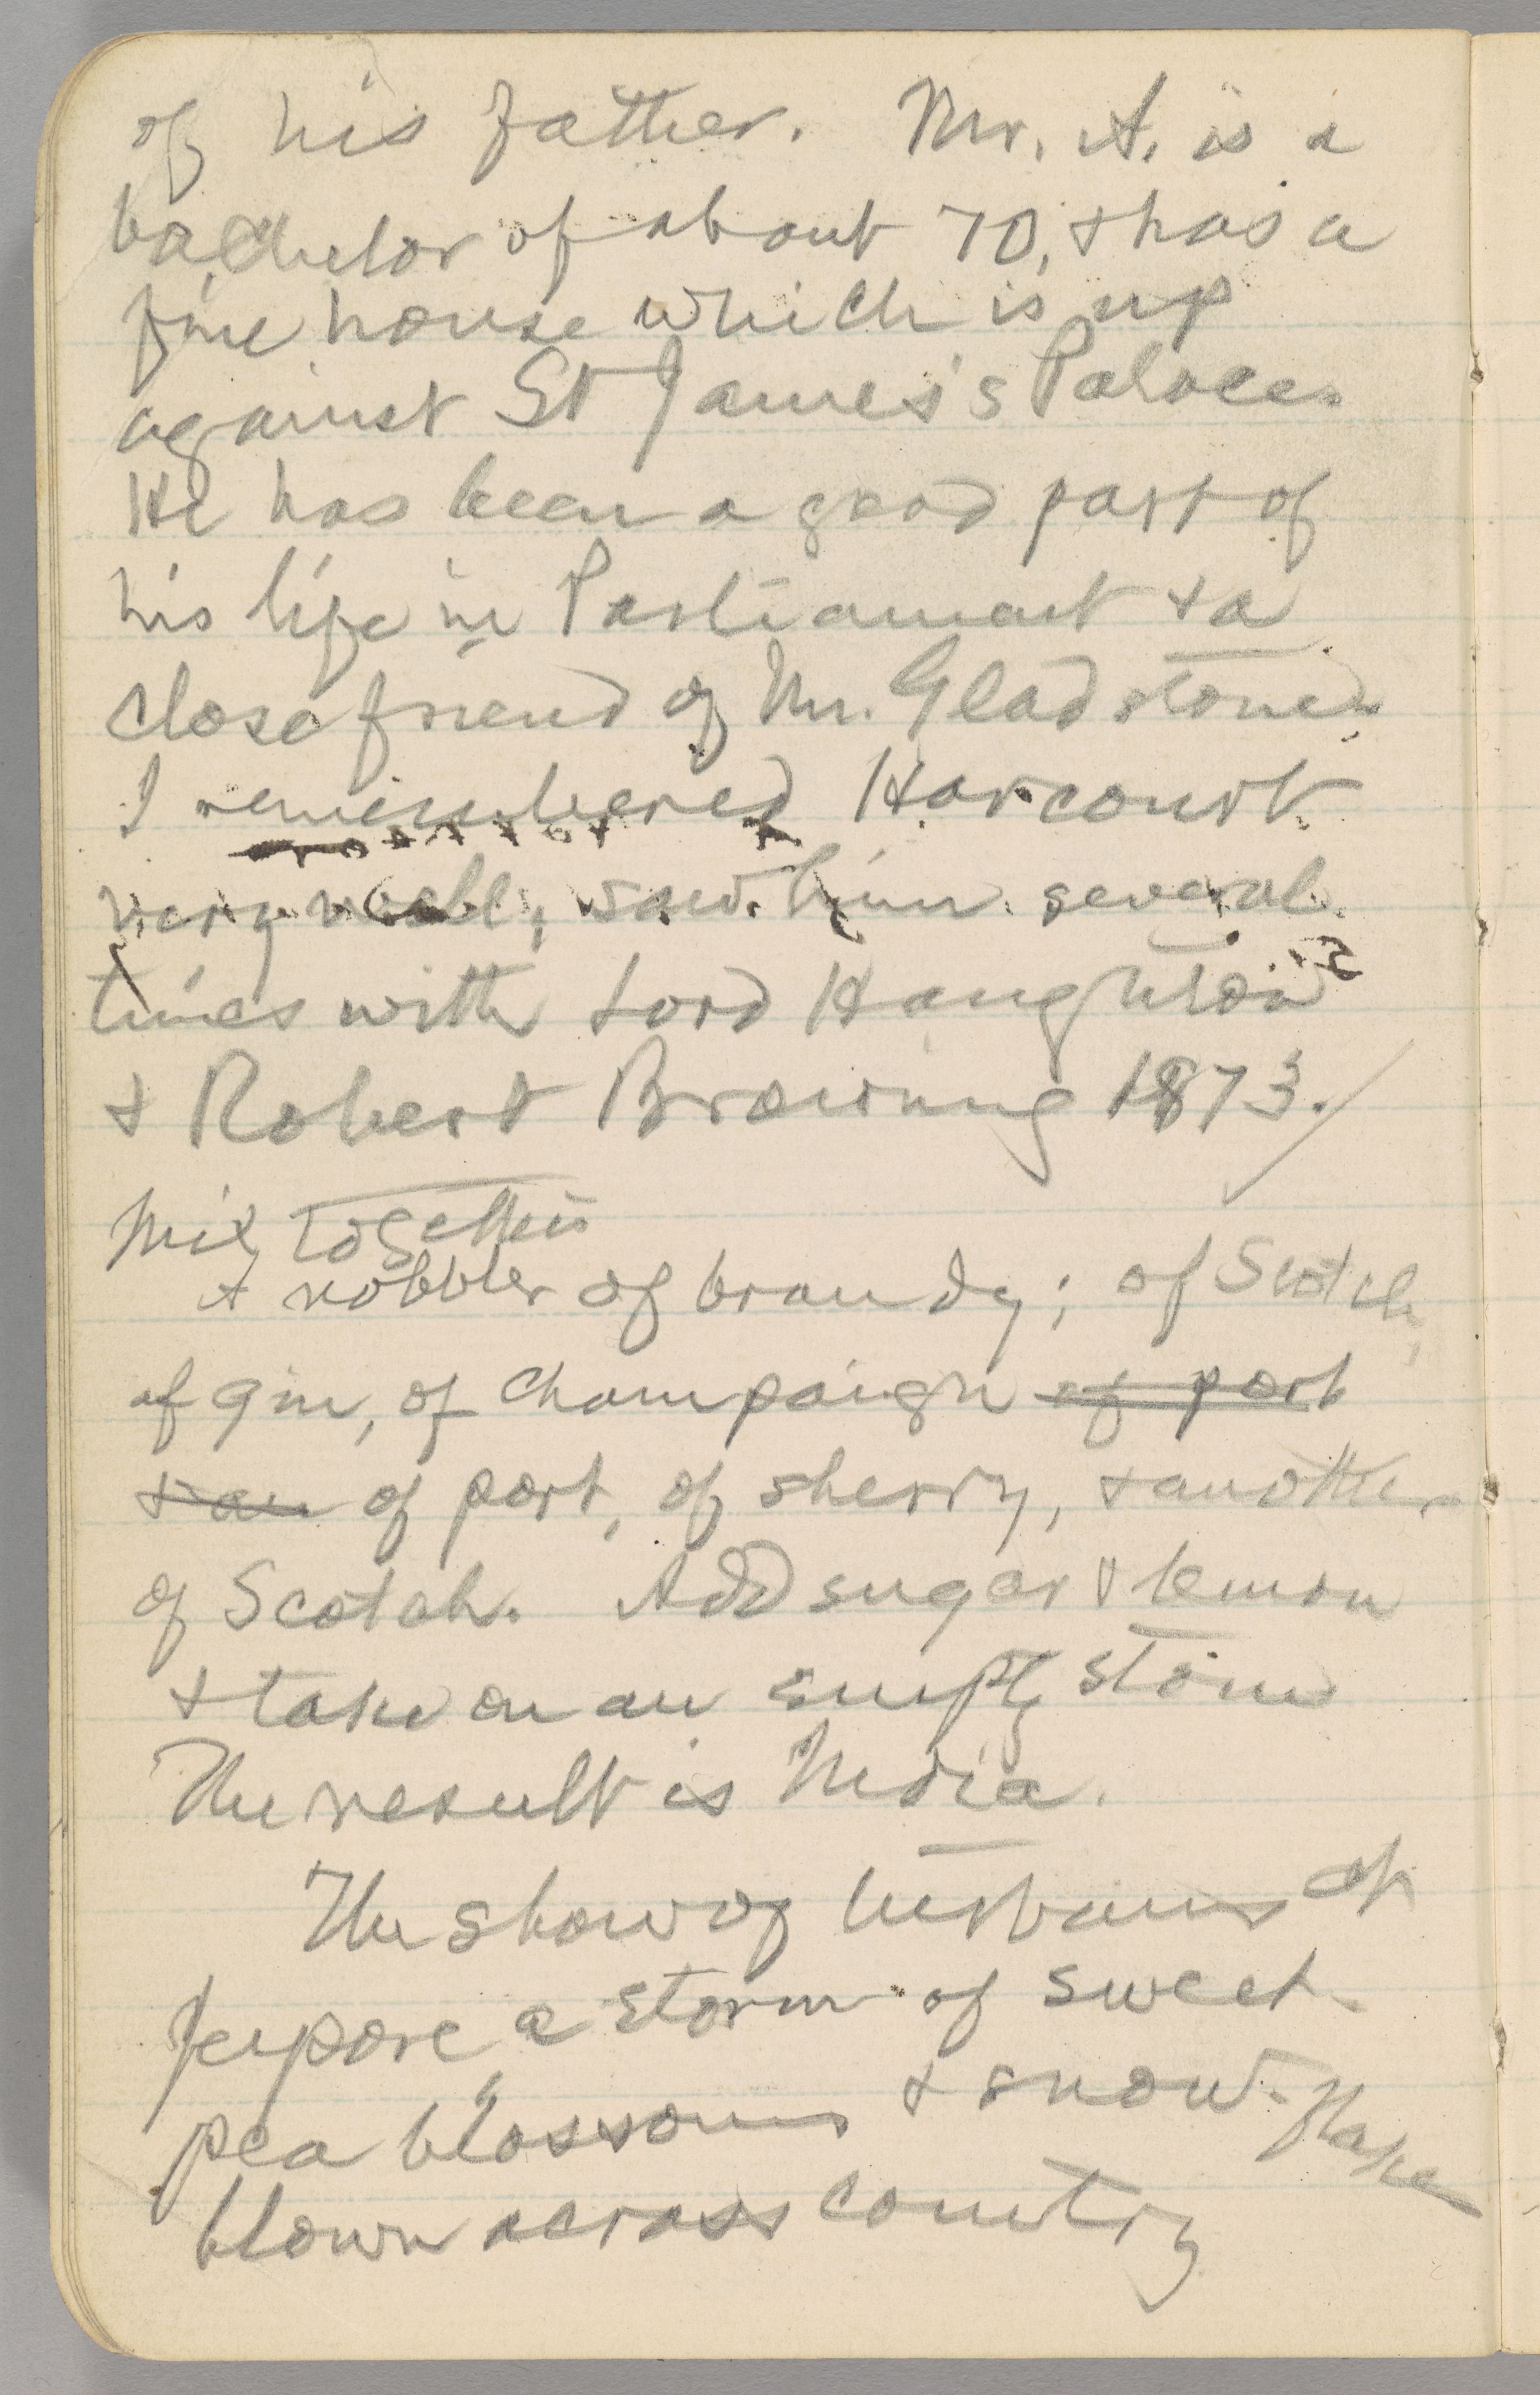 of his father. Mr. A. is a
bachelor of about 70, & has a
fine house which is up
against St James's Palace.
He has been a good part of
his life in Parliament & a
close friend of Mr. Gladstone.
I remembered Harcourt
very well; saw him several
times with Lord Houghton
& Robert Browning 1873.
Mix together
A nobbler of brandy; of Scotch,
of gin, of champaign of port
& an of port, of sherry, & another
of Scotch. Add sugar & lemon
& take on an empty stom
The result is India.
The show of turbans at
Jeypore a storm of sweet-
pea blossoms & snow-flake
blown across country